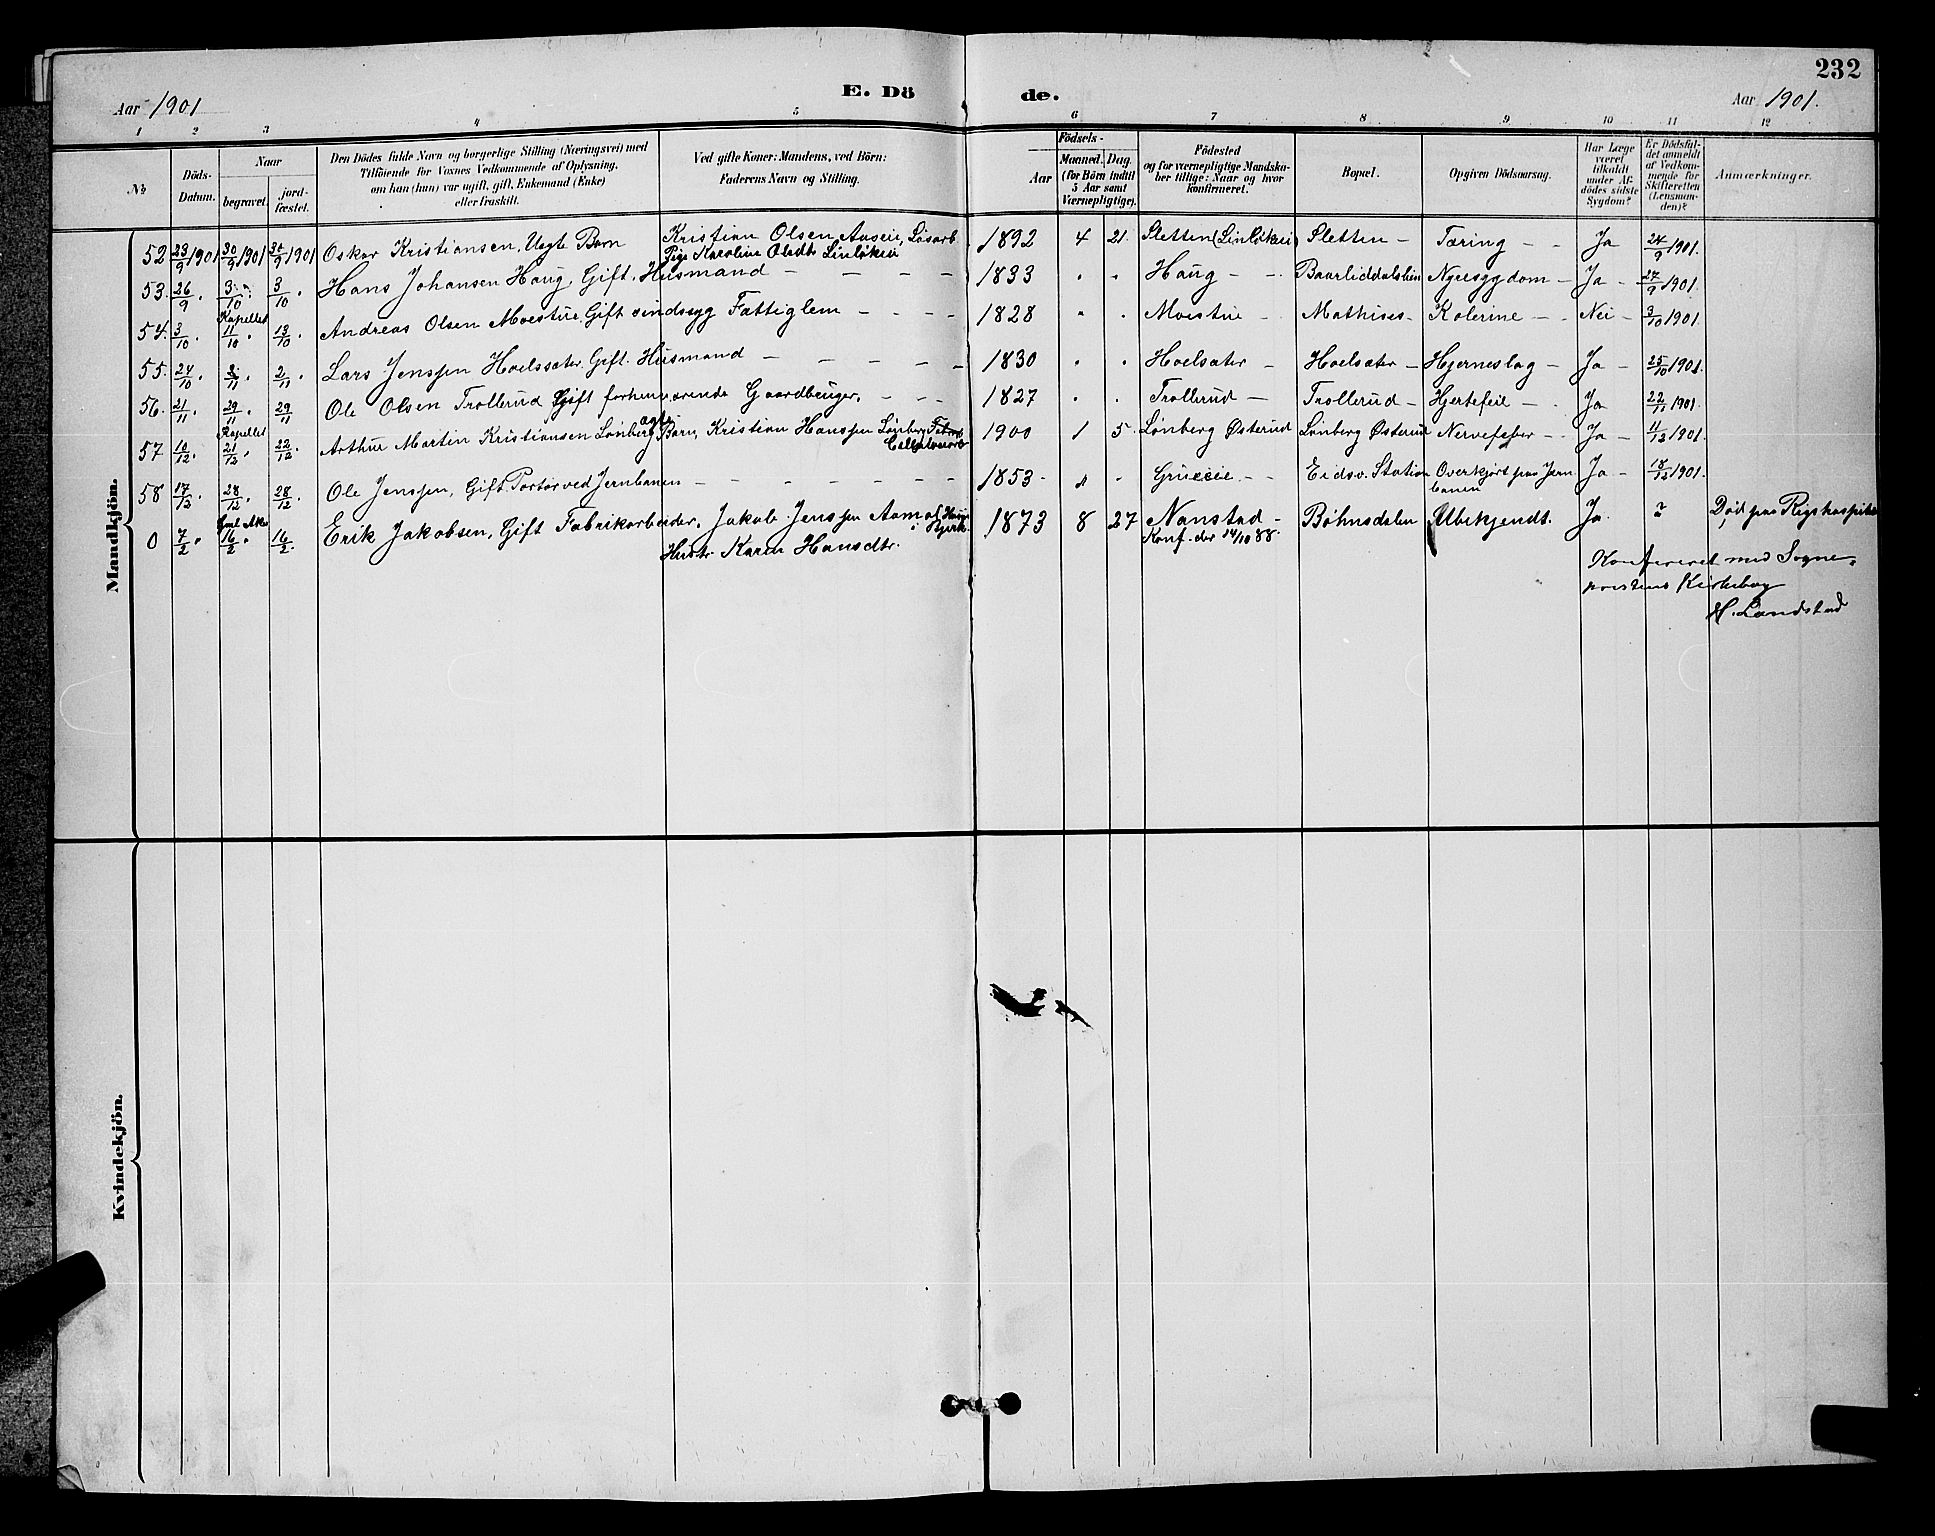 232
Aar 1901
E. Dö de.
Aar 1901.
1 2 3 4 5 6 7 8 9 10 11 12
No
Döds-Datum.
Naar
begravet.
jord-fæstet.
Den Dödes fulde Navn og borgerlige Stilling (Næringsvei) med
Tilföiende for Voxnes Vedkommende af Oplysning,
om han (hun) var ugift, gift, Enkemand (Enke)
eller fraskilt.
Ved gifte Koner: Mandens, ved Börn:
Faderens Navn og Stilling.
Födsels-
Aar
Maaned. Dag.
(for Börn indtil
5 Aar samt
Værnepligtige).
Födested
og for værnepligtige Mandska-
ber tillige: Naar og hvor
konfirmeret.
Bopæl.
Opgiven Dödsaarsag.
Har Læge
været
tilkaldt
under Af-
dödes sidste
Sygdom?
Er Dödsfal-
det anmeldt
af Vedkom-
mende for
Skifteretten
(Lensman-
den)?
Anmærkninger.
Mandkjön.
52 23/9 1901 30/9 1901 30/9 1901 Oskar Kristiansen, Uegte Barn Kristian Olsen Aaseie, Løsarb 1892 4 21. Sletten (Linløkeie) Sletten – Tæring – – Ja 24/9 1901.
Pige Karoline Olsdtr Linløkeie
53. 26/9 3/10 3/10 Hans Johansen Haug, Gift, Husmand – – – – 1833 " " Haug – – Baarliddalshien Nyresygdom – Ja – 27/9 1901.
Kapellet
54. 3/10 11/10 13/10 Andreas Olsen Moestue, Gift sindsyg Fattiglem – – – – 1828 " " Moestue – Mathises – Kolerine – – Nei – 3/10 1901.
55. 24/10 2/11 2/11 Lars Jenssen Hoelssæter, Gift. Husmand – – – – – 1830 " " Hoelsæter – Hoelsæter – Hjerneslag – Ja – 25/10 1901.
56. 21/11 29/11 29/11 Ole Olsen Trollerud Gift forhenværende Gaardbruger. – – – 1827 " " Trollerud – Trollerud – Hjertefeil – – Ja 22/11 1901.
Kapellet
57 10/12 21/12 22/12 Arthur Martin Kristiansen Lønberg, ægte Barn, Kristian Hanssen Lønberg, Fabrik 1900 1 5. Lønberg Østerud Lønberg Østerud Nervefeber – – Ja – 11/12 1901.
58 17/12 28/12 28/12 Ole Jenssen, Gift. Portør ved Jernbanen – – – – – – 1853 – " " Grueeie – – Eidsv. Station Overkjørt paa Jern Ja – 18/12 1901.
banen
0 7/2 16/2 16/2 Erik Jakobsen, Gift Fabrikarbeider, Jakob Jenssen Aamot 1873 8 27 Nanstad – Bøhnsdalen Ubekjendt. Ja. ? Død paa Rigshospital
Hustr Karen Hansdtr.
Konf. der 14/10 88.
Konfereret med Sogne-
prestens Kirkebog
H. Landstad
Kvindekjön.